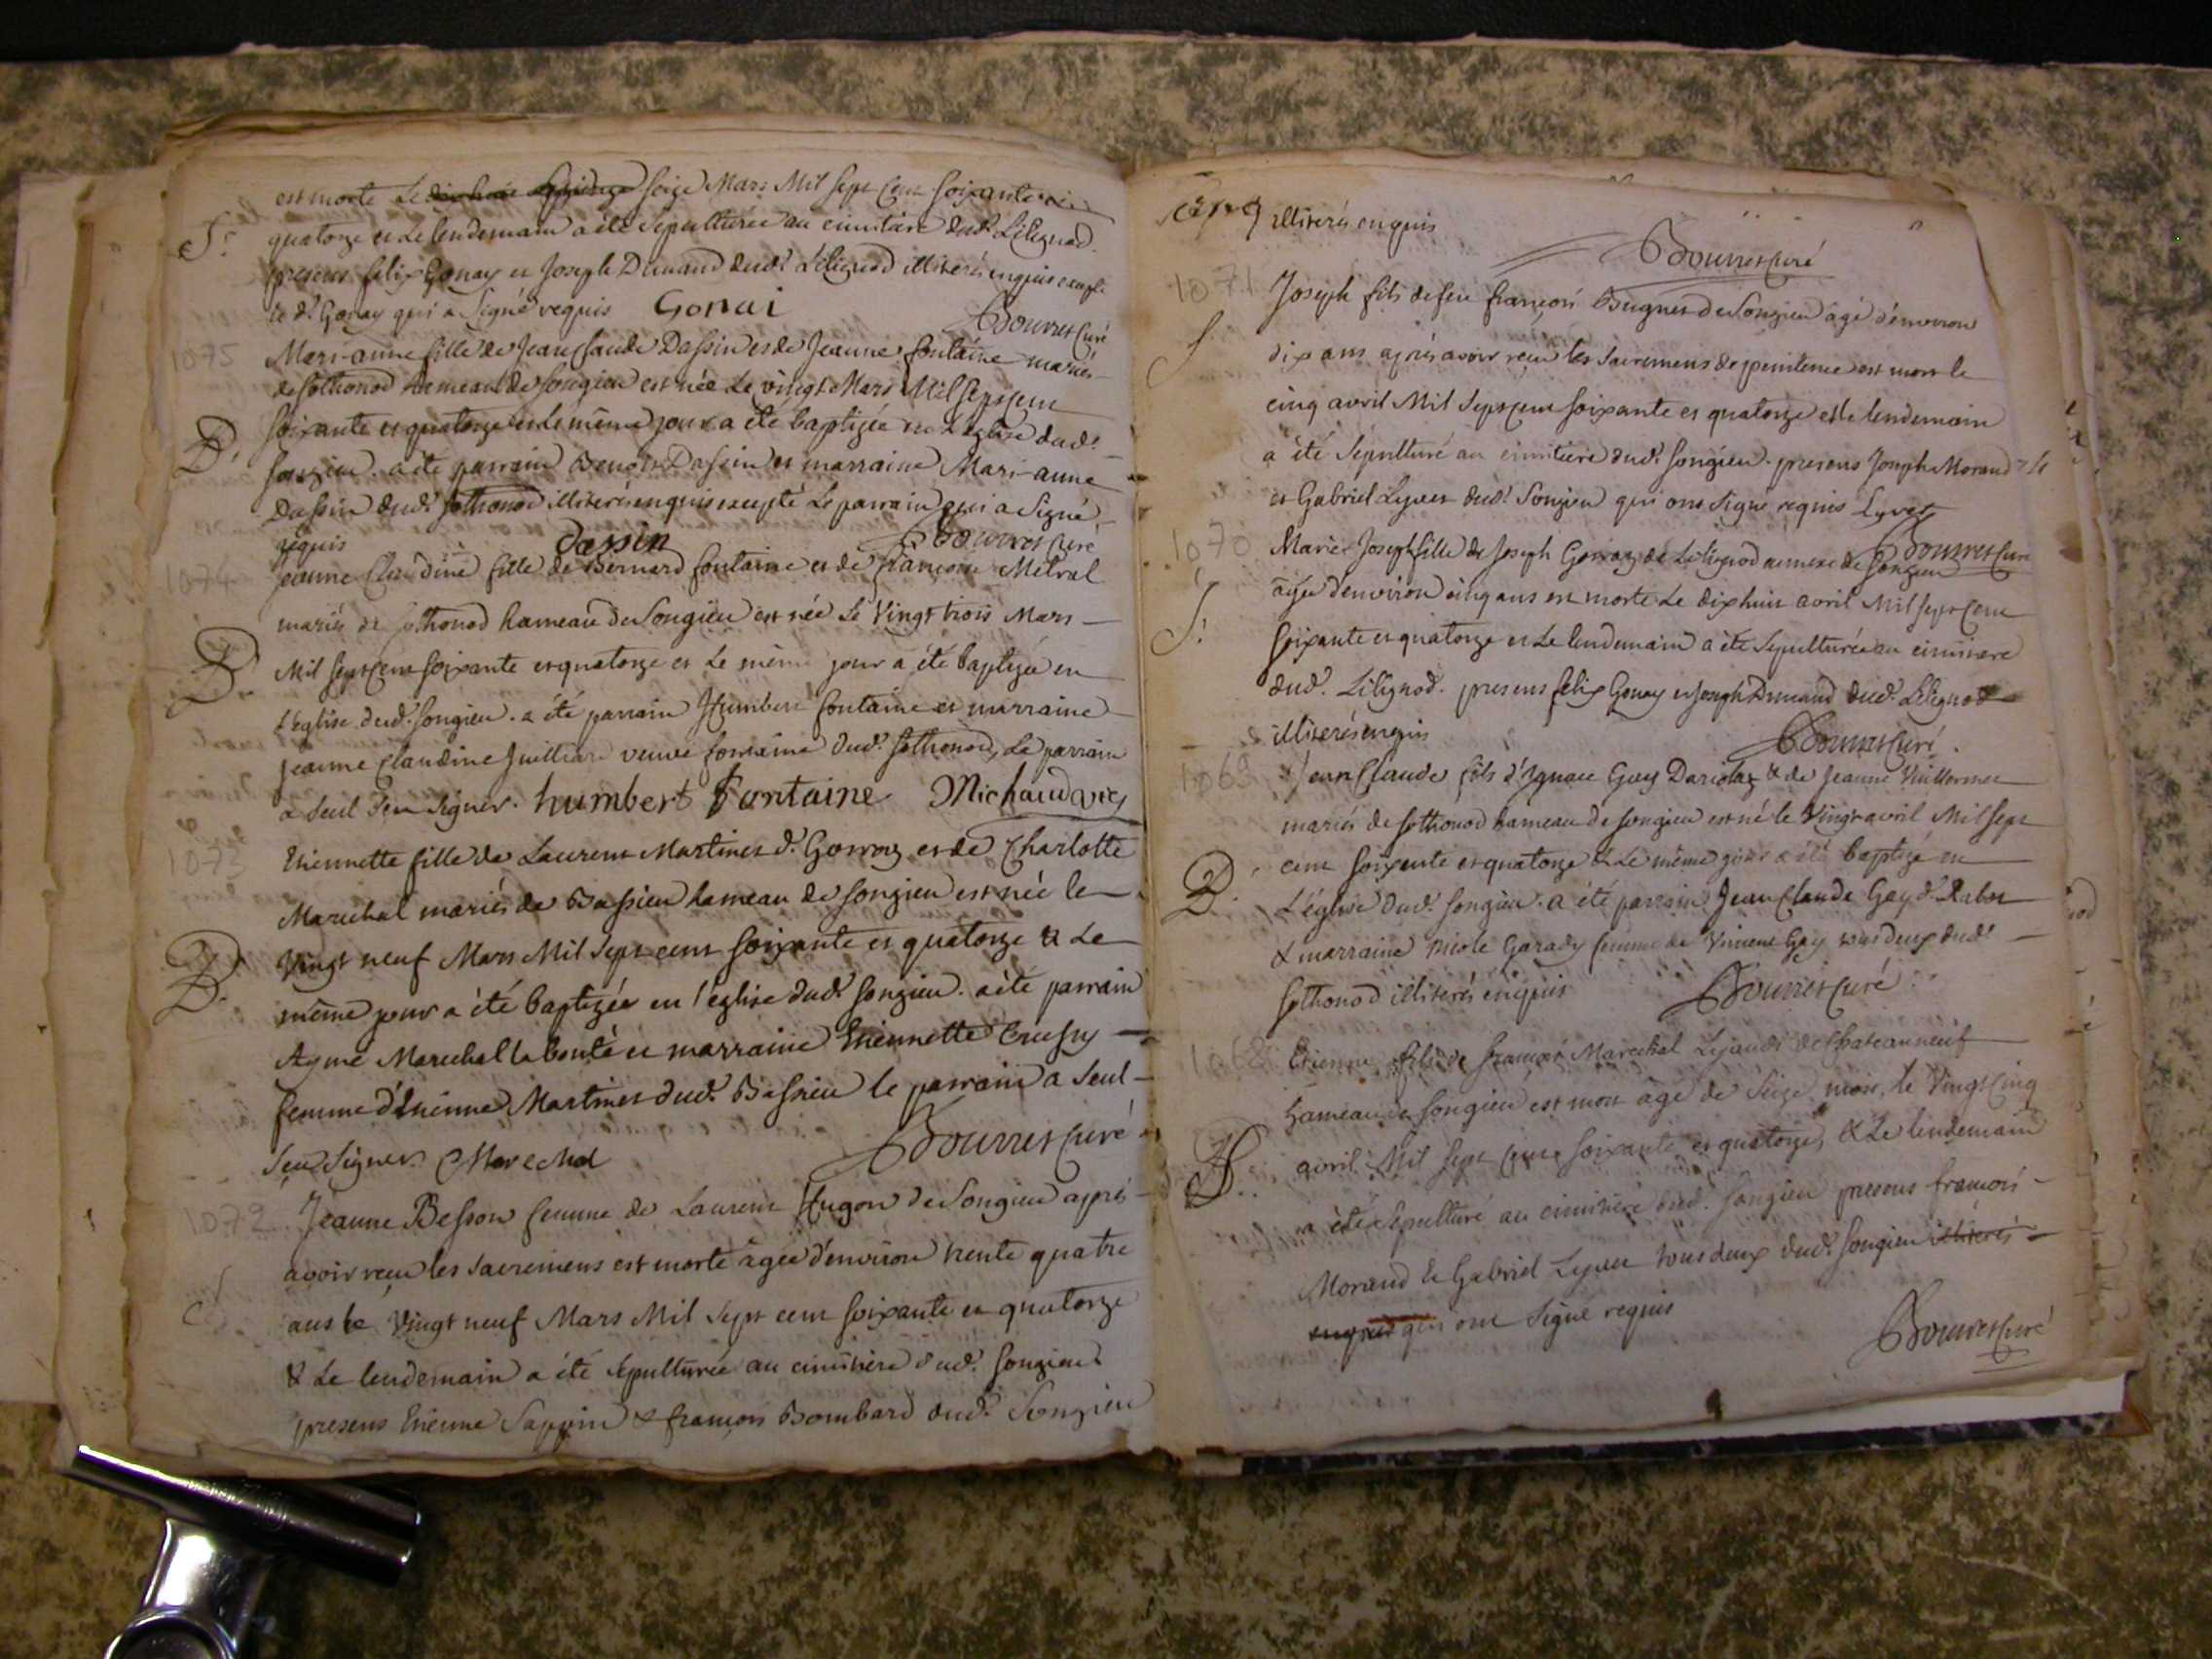 est morte Le seize Mars Mil sept cent soixante
S. quatorze et Le lendemain a été sépulturée au cimitiére dud. Lilignod
presens felix Gonay et Joseph Dumand dud. Lilignod illiterés enquis excepté
le d. Gonay qui a signé requis Gonai Bourret Curé
1075 Mari-anne fille de Jean Claude Dassin et de Jeanne fontaine mariés
de sothonod hameau de songieu est née Le vingt Mars Mil sept cent
B. soixante et quatorze et le même jour a été baptizée en L'église dud.
songieu. a été parrain Benoit Dassin et marraine Mari-anne
Dassin dud. sothonod illiterés enquis excepté Le parrain qui a signé
requis Dassin Bourret Curé
1074 jeanne Claudine fille de Bernard fontaine et de françoise Metral
mariés de sothonod hameau de Songieu est née Le Vingt trois Mars
B. Mil sept cent soixante et quatorze et Le même jour a été baptizée en
L'église dud. songieu. a été parrain Humbert fontaine et marraine
jeanne Claudine Juilliard veuve fontaine dud. sothonod, Le parrain
a seul seu signer. humbert Fontaine Michaud vic
1073 Etiennette fille de Laurent Martinet d. Gorroz et de Charlotte
Marechal mariés de Bassieu hameau de songieu est née le
B. Vingt neuf Mars Mil sept cent soixante et quatorze & Le
même jour a été baptizée en l'église dud. songieu. a été parrain
Aymé Marechal la bonté et marraine Etiennette Crussy
femme d'Etienne Martinet dud. Bassieu le parrain a seul
seu signer. Marechal Bourret Curé
1072 Jeanne Besson femme de Laurent Hugon de Songieu après
avoir reçu les sacremens est morte agée d'environ trente quatre
S. ans le Vingt neuf Mars Mil sept cent soixante et quatorze
& Le lendemain a été sépulturée au cimitière dud. songieu
presens Etienne Sappin & françois Bombard dud. Songieu
illiterés enquis
Bourret Curé
1071 Joseph fils de feu françois Bugnet de Songieu agé d'environ
S. dix ans après avoir reçu les sacremens de penitence est mort le
cinq avril Mil sept cent soixante et quatorze et le lendemain
a été sépulturé au cimitière dud. songieu. presens Joseph Morand
et Gabriel Lyvet dud. Songieu qui ont signé requis Lyvet
1070 Marie Joseph fille de Joseph Gonay de Lilignod annexe de Songieu Bourret Curé
S. agée d'environ cinq ans est morte Le dixhuit avril Mil sept cent
soixante et quatorze et Le lendemain a été sépulturée au cimitiere
dud. Lilignod. presens felix Gonay et Joseph Dumand dud. Lilignod
illiterés enquis Bourret Curé
1069 Jean Claude fils d'Ignace Guy Dariolaz & de Jeanne Vuillermet
mariés de sothonod hameau de songieu est né le Vingt avril Mil sept
B. cent soixante et quatorze & Le même jour a été baptizé en
L'église dud. songieu. a été parrain Jean Claude Gay d. Rabet
& marraine Nicole Garady femme de Vincent Gay tous deux dud.
sothonod illiterés enquis Bourret Curé
1068 Etienne fils de françois Marechal Lejaude de Chateauneuf
hameau de songieu est mort agé de Seize mois, le Vingt Cinq
S. avril Mil sept Cent soixante et quatorze, & Le lendemain
a été sépulturé au cimitière dud. songieu presens francois
Morand & Gabriel Lyvet tous deux dud. songieu illiterés
enquis qui ont signé requis
Bourret Curé